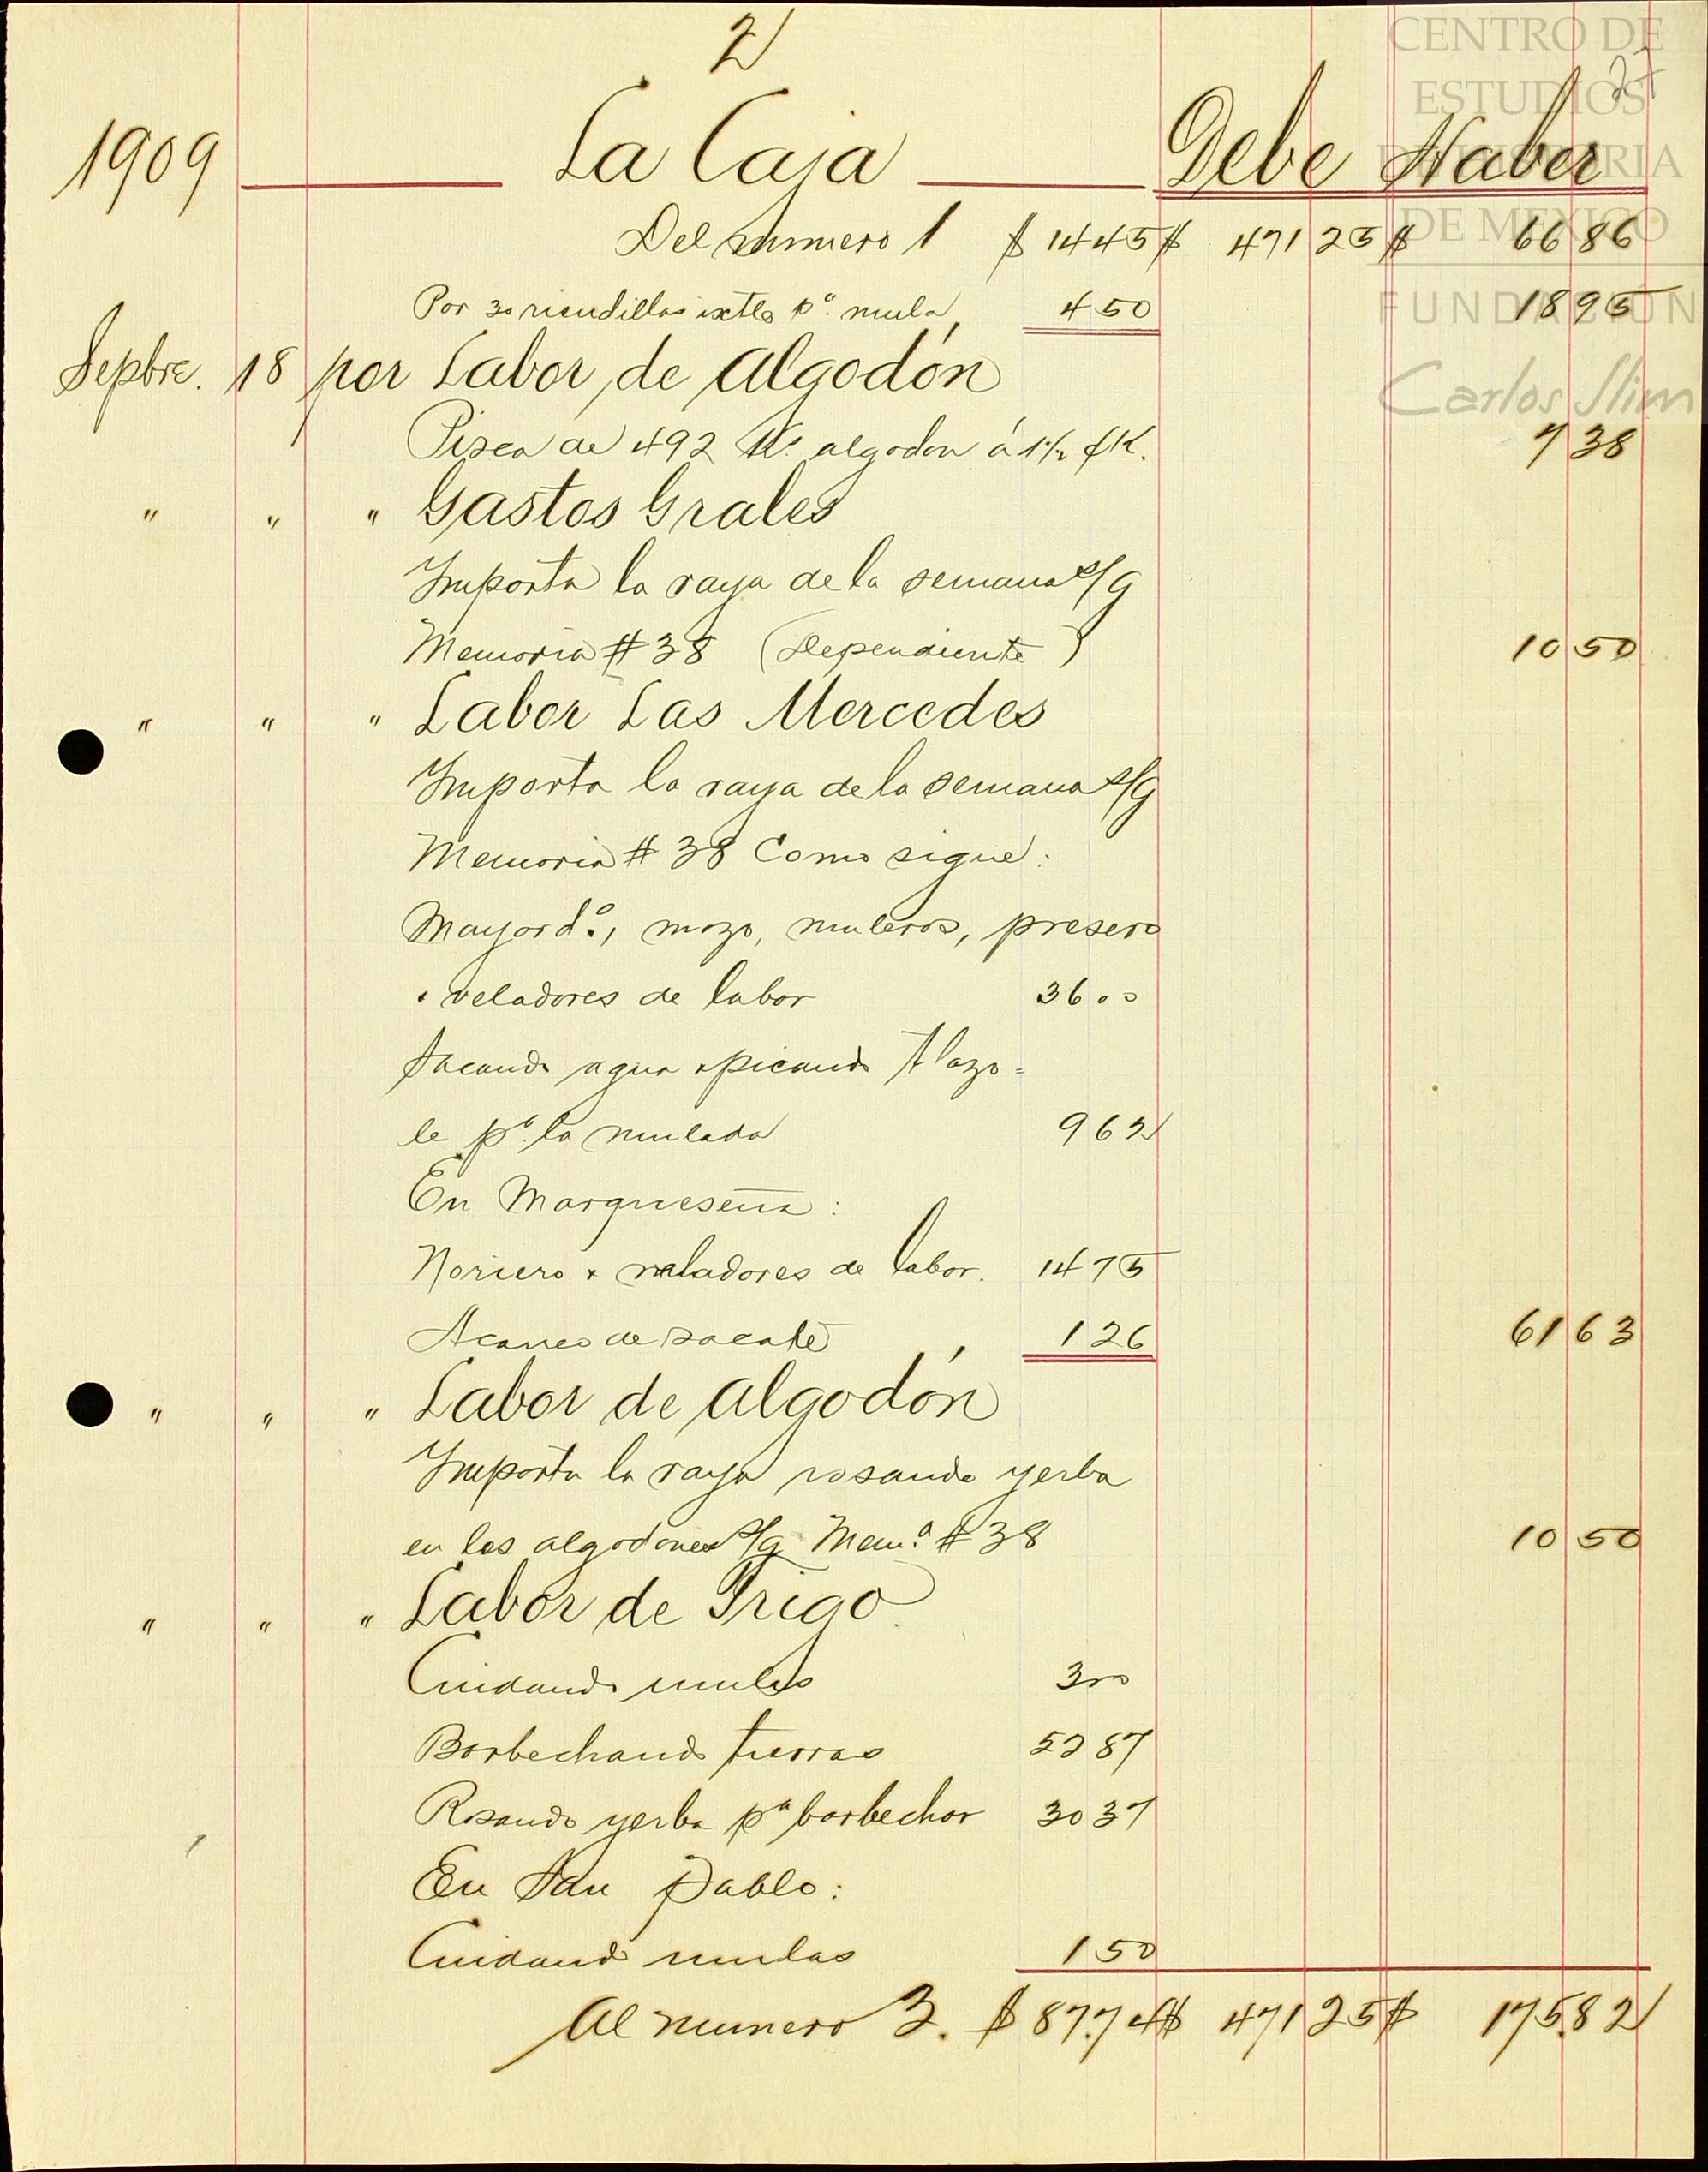 2
CENTRO DE
ESTUDIOS
DE HISTORIA
DE MEXICO
FUNDACION
Carlos Slim
1909 La Caja Debe Haber
Del numero 1 $ 1445 $ 471 25 $ 66 86
Por 30 riendillas ixtle pª. mula 4 50 18 95
Sepbre. 18 por Labor de Algodón
Pisca de 492 K. algodon á 1½ ¢ K. 7 38
" " " Gastos Grales
Importa la raya de la semana s/g
Memoria # 38 (Dependiente) 10 50
" " " Labor Las Mercedes
Importa la raya de la semana s/g
Memoria # 38 Como sigue:
Mayordº., mozo, muleros, presero
y veladores de labor 36 00
Sacando agua y picando Tlazo=
le pª. la mulada 9 62
En Marqueseña:
Noriero y veladores de labor. 14 75
Acarreo de sacate 1 26 61 63
" " " Labor de Algodón
Importa la raya rosando yerba
en los algodones s/g Mem.ª # 38 10 50
" " " Labor de Trigo.
Cuidando mulas 3 00
Barbechando tierras 52 87
Rosando yerba pª barbechar 30 37
En San Pablo:
Cuidand mulas 1 50
Al numero 3. $ 87.74 $ 471 25 $ 175.82